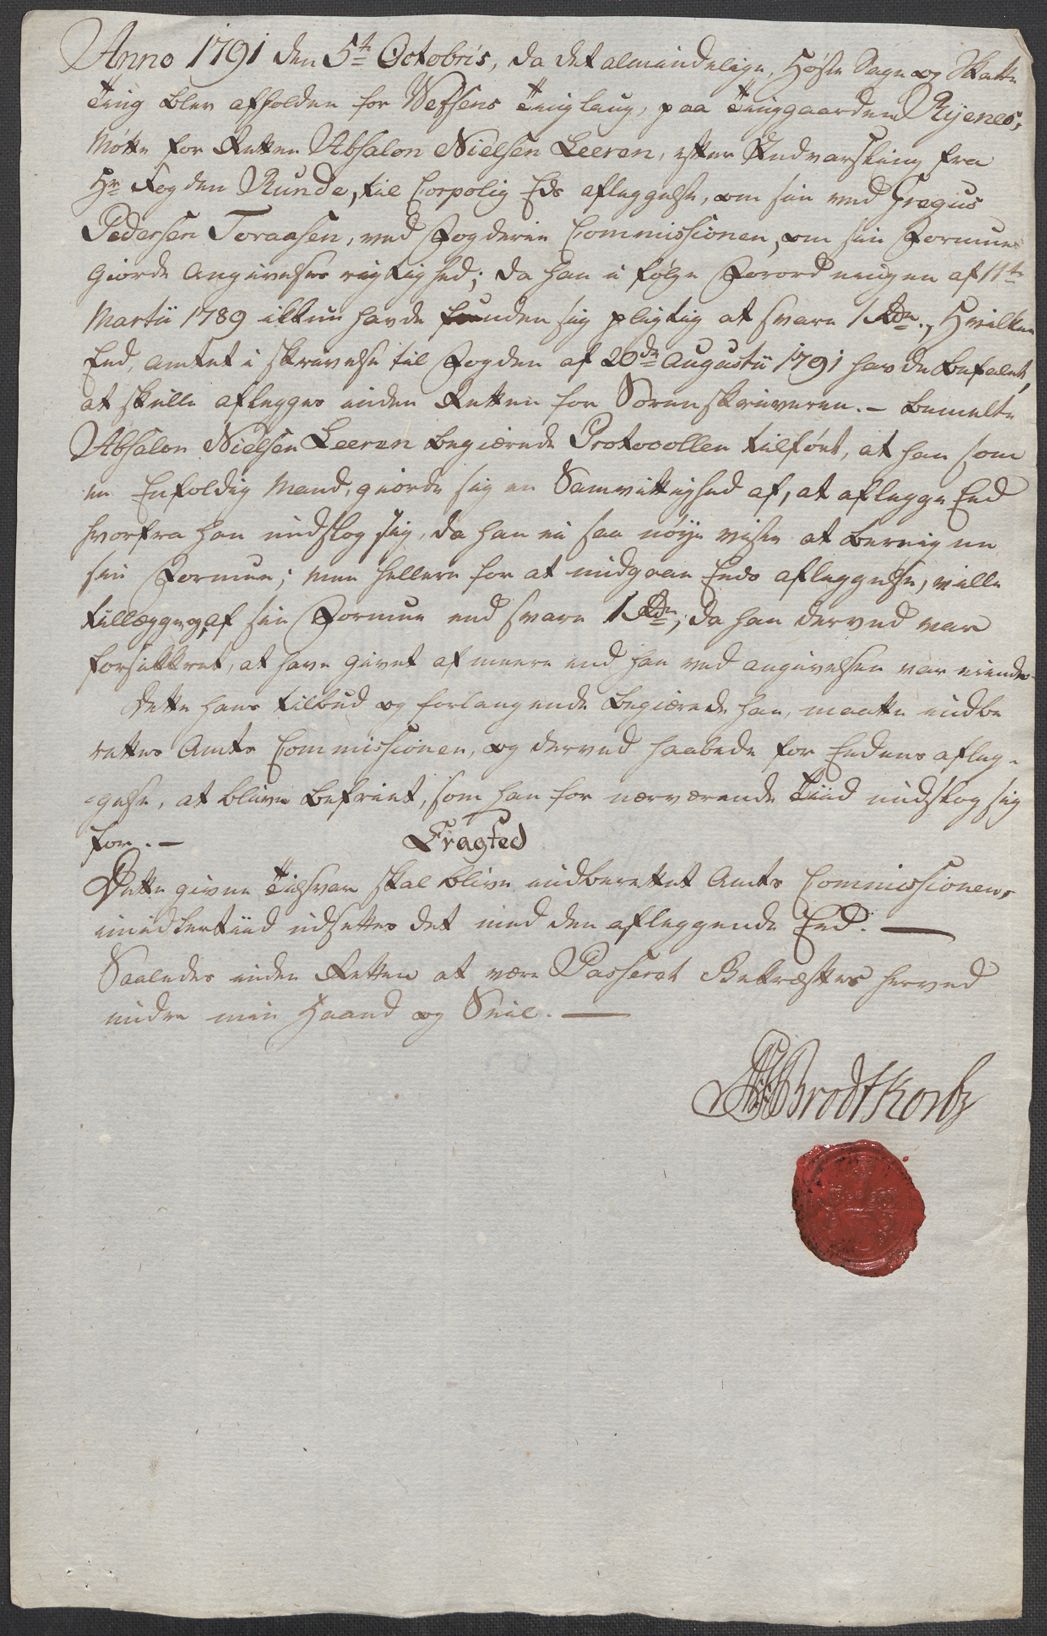 Anno 1791 den 5te Octobris, da det almindelige Høste Sage og Skatte
Ting blev afholden for Wefsens Tinglaug, paa Tinggaarden Rijenes,
Mötte for Retten Absalon Nielsen Leeren, efter Indvarsling fra
Hr Fogden Runde, til Corpolig Eds aflæggelse, om sin ved Gregius
Pedersen Toraasen, ved Fogderie Commissionen, om sin Formues
Giorde Angivelses rigtighed; da han i følge Forordningen af 11te
Martii 1789 ikkun havde funden sig pligtig at svare 1 Rdr., Hvilken
Eed, Amtet i skrivelse til Fogden af 20de Augustii 1791 havde befalet,
at skulle aflegges inden Retten for Sorenskriveren. - bemelte
Absalon Nielsen Leeren begiærede Protocollen tilført, at han som
en Enfoldig Mand, giorde sig en Samvittighed af, at aflegge Eed
hvorfra han undslog sig, da han ei saa nøye vidste at beregne
sin Formue; men hellere for at undgaae Eeds aflæggelse, ville
tillægge af sin Formue end svare 1 Rdr; da han derved var
forsikkret, at have givet af meere end han ved angivelsen var eiende
Dette hans tilbud og forlangende begiærede han, maatte indbe
rettes Amts Commissionen, og derved haabede for Eedens afleg-
gelse, at blive befriet, som han for nærværende Tiid undslog sig
for. -
Eragted
Dette givne Tilsvar skal blive indberettet Amts Commissionen,
imidlertiid udsettes det med den aflæggende Eed. -
Saaledes inden Retten at være Passeret Bekræftes herved
under min Haand og Seil. -
Brodtkorb